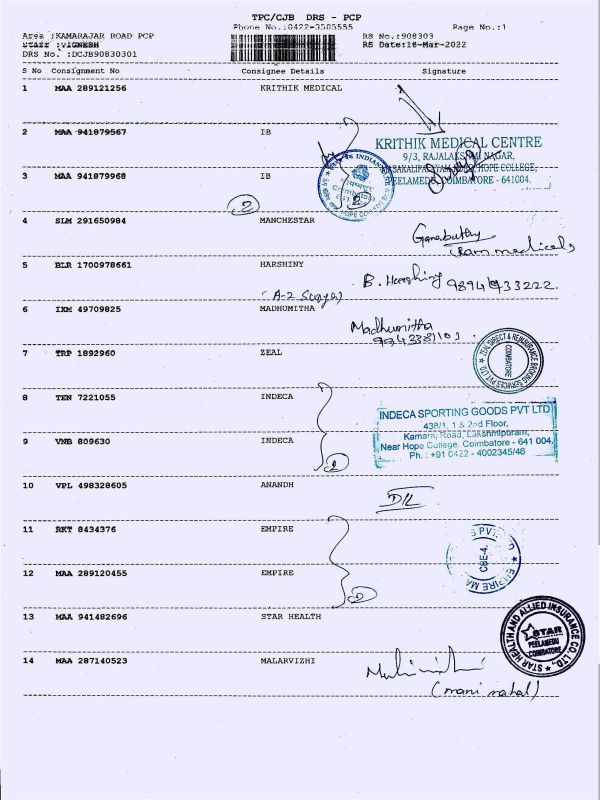 TPC/CJB DRS - PCP
Phone No.:0422-3505555
Page No.:1
Area :KAMARAJAR ROAD PCP
RS No.:908303
Staff :VIGNESH
RS Date:18-Mar-2022
DRS No. :DCJB90830301
S No Consignment No Consignee Details Signature
1 MAA 289121256 KRITHIK MEDICAL
2 MAA 941879567 IB
KRITHIK MEDICAL CENTRE
9/3, RAJALAKSHMI NAGAR,
HOPE COLLEGE,
PEELAMEDU, COIMBATORE - 641004.
3 MAA 941879968 IB
2
4 SLM 291650984 MANCHESTAR
Ganabathy
(Ram medicals)
5 BLR 1700978661 HARSHINY
B. Harshiny
(A-2 Surya)
6 IXM 49709825 MADHUMITHA
Madhumitha
7 TRP 1892960 ZEAL
ZEAL DIRECT & REINSURANCE BROKING SERVICES PVT LTD
COIMBATORE
8 TEN 7221055 INDECA
INDECA SPORTING GOODS PVT LTD
438/1, 1 & 2nd Floor,
Kamaraj Road, Lakshmipuram,
Near Hope College, Coimbatore - 641 004.
Ph. : +91 0422 - 4002345/46
9 VNB 809630 INDECA
2
10 VPL 498328605 ANANDH
11 RKT 8434376 EMPIRE
CBE-4.
12 MAA 289120455 EMPIRE
2
13 MAA 941482696 STAR HEALTH
STAR HEALTH AND ALLIED INSURANCE CO. LTD.
STAR
PEELAMEDU
COIMBATORE
14 MAA 287140523 MALARVIZHI
(mani mahal)